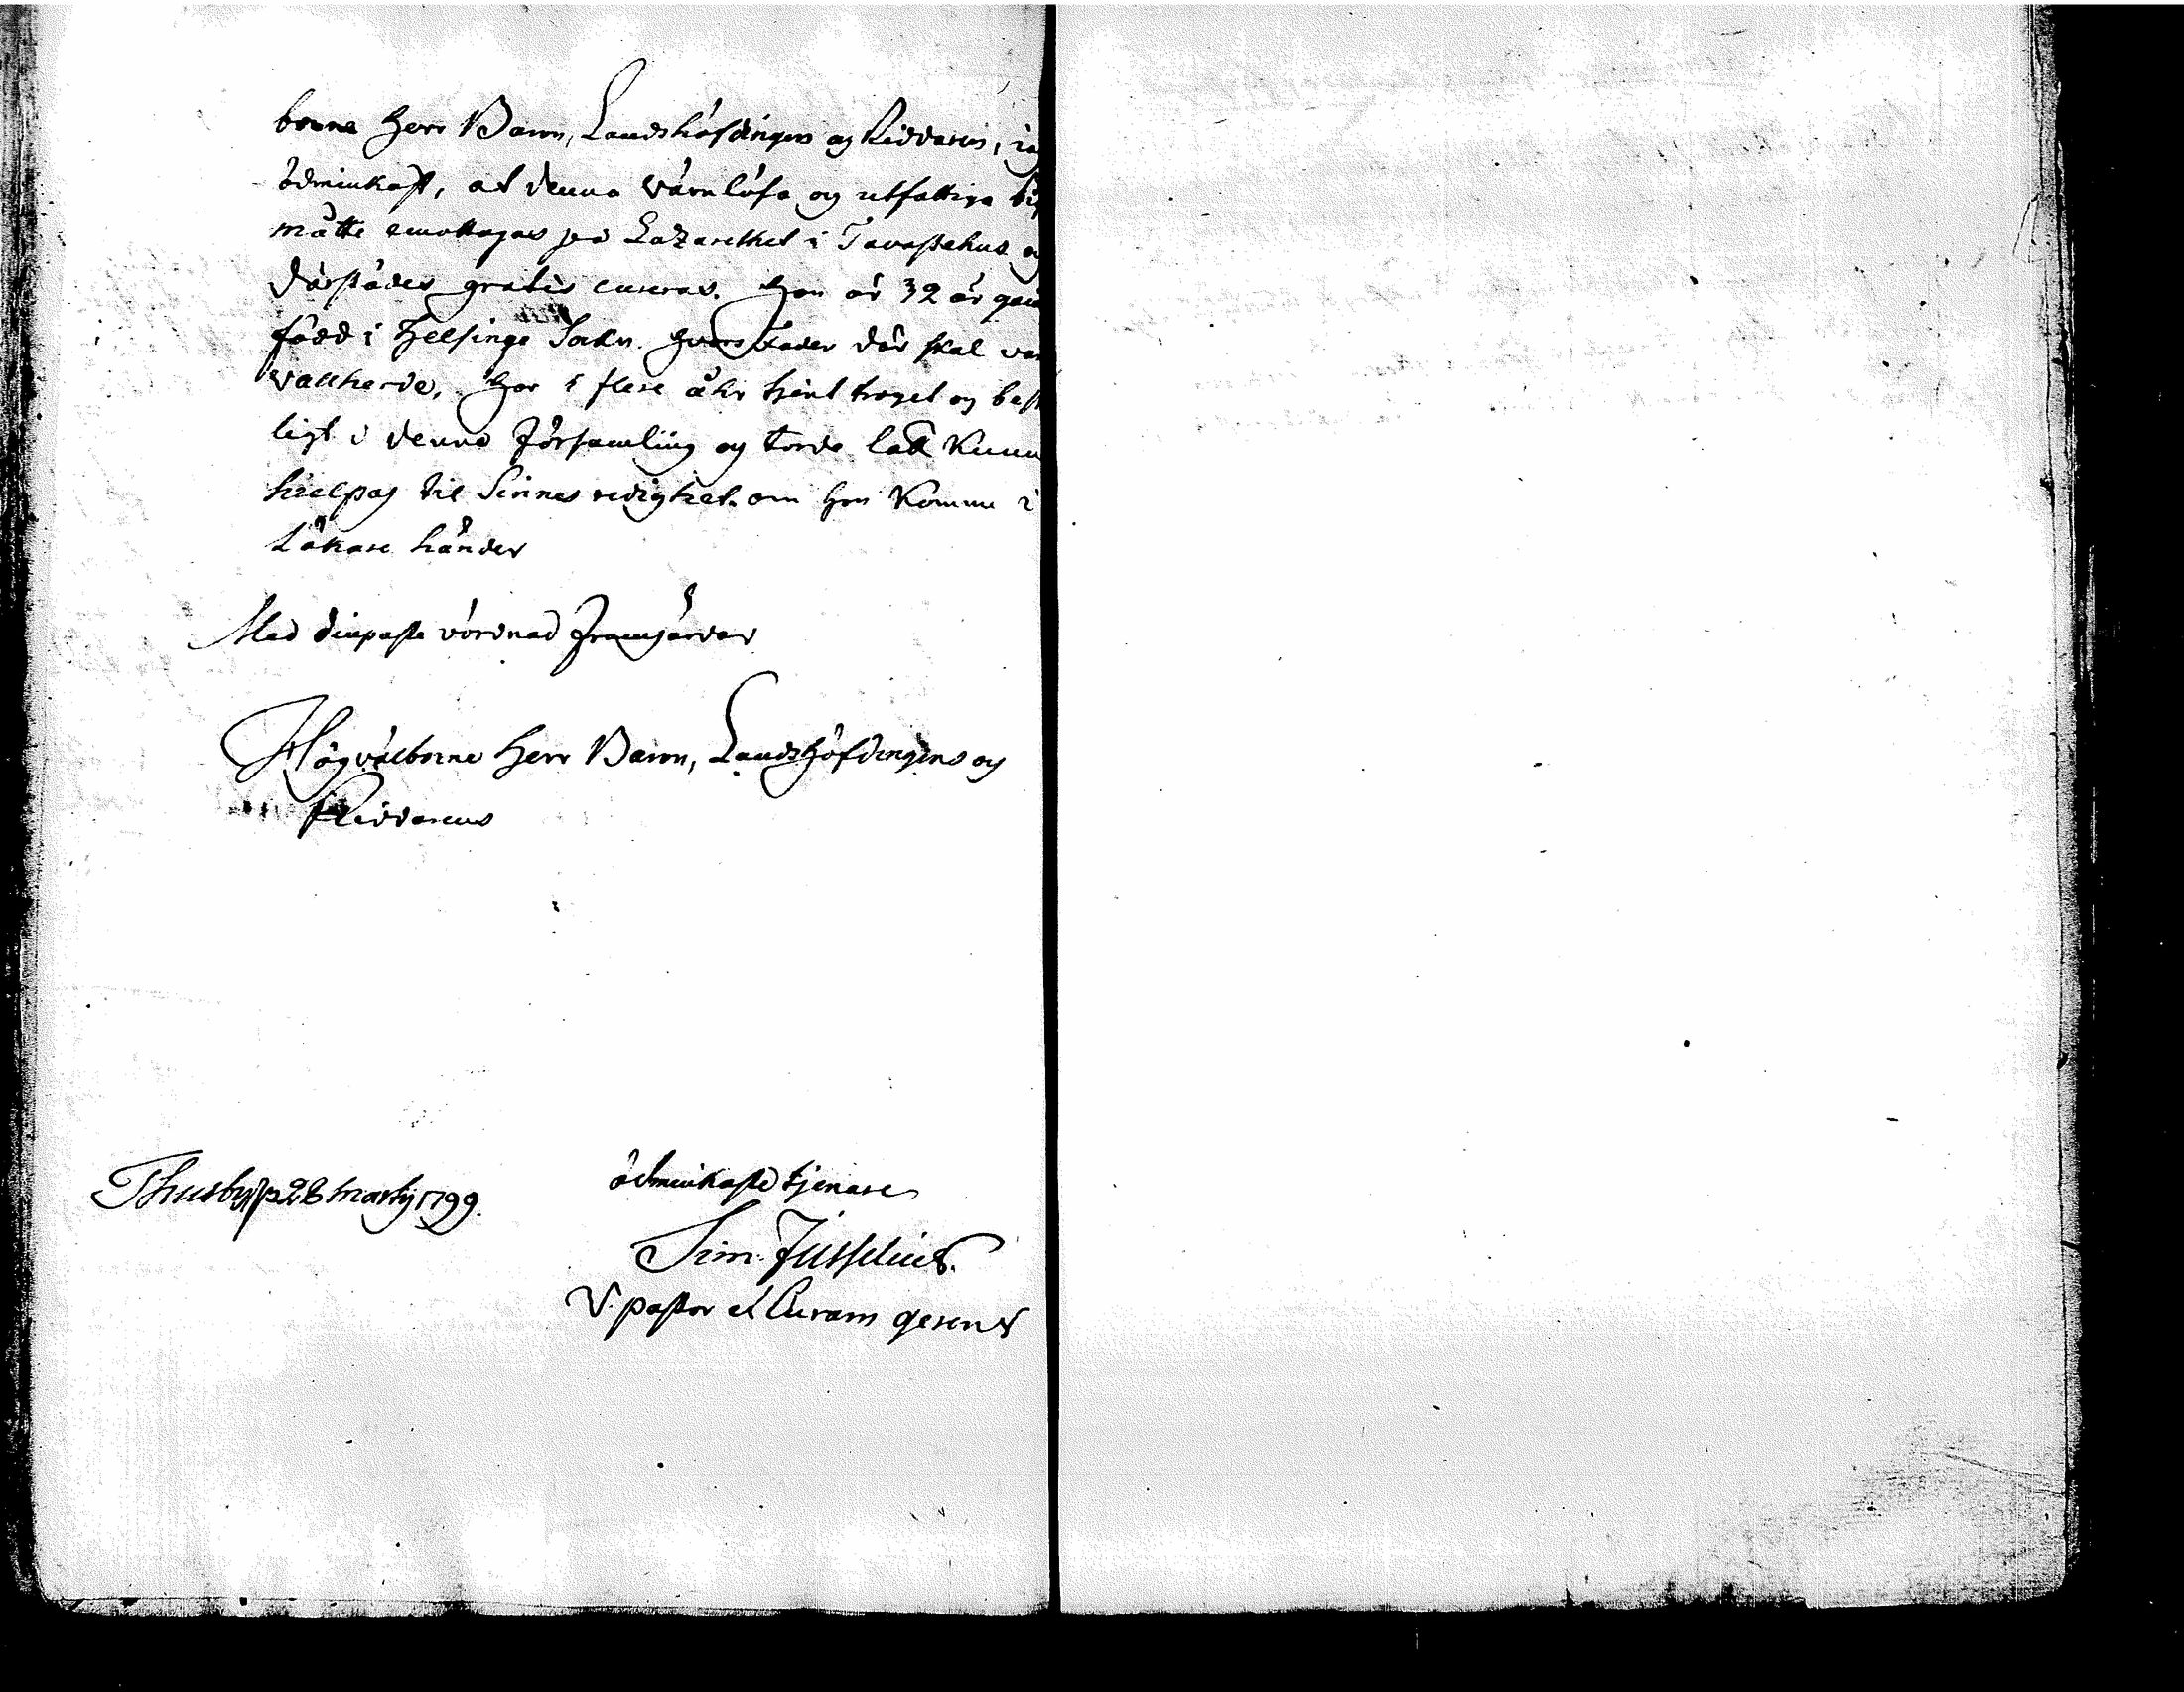 borne Herr Baron, Landshöfdingen og Riddaren,
ödmiukast, at denna värnlösa og utfattiga
måtte emottagas på Lazarethet i Tavastehus og
därstädes gratis cureras. Hon är 32 år
född i Helsinge Sokn. hvars Fader där skal
vallherde, Har i flere åhr tjent troget og
ligt i denna Församling og torde lätt
hielpas til Sinnes redighet. om hon komme i
Läkare händer
Med diupaste vördnad Framhärdar
Högvälborne Herr Baron, Landshöfdingens og
Riddarens
ödmiukaste tjenare
Thusby 28 Martij 1799.
Sim. Jusselius.
V. pastor et Curam gerens